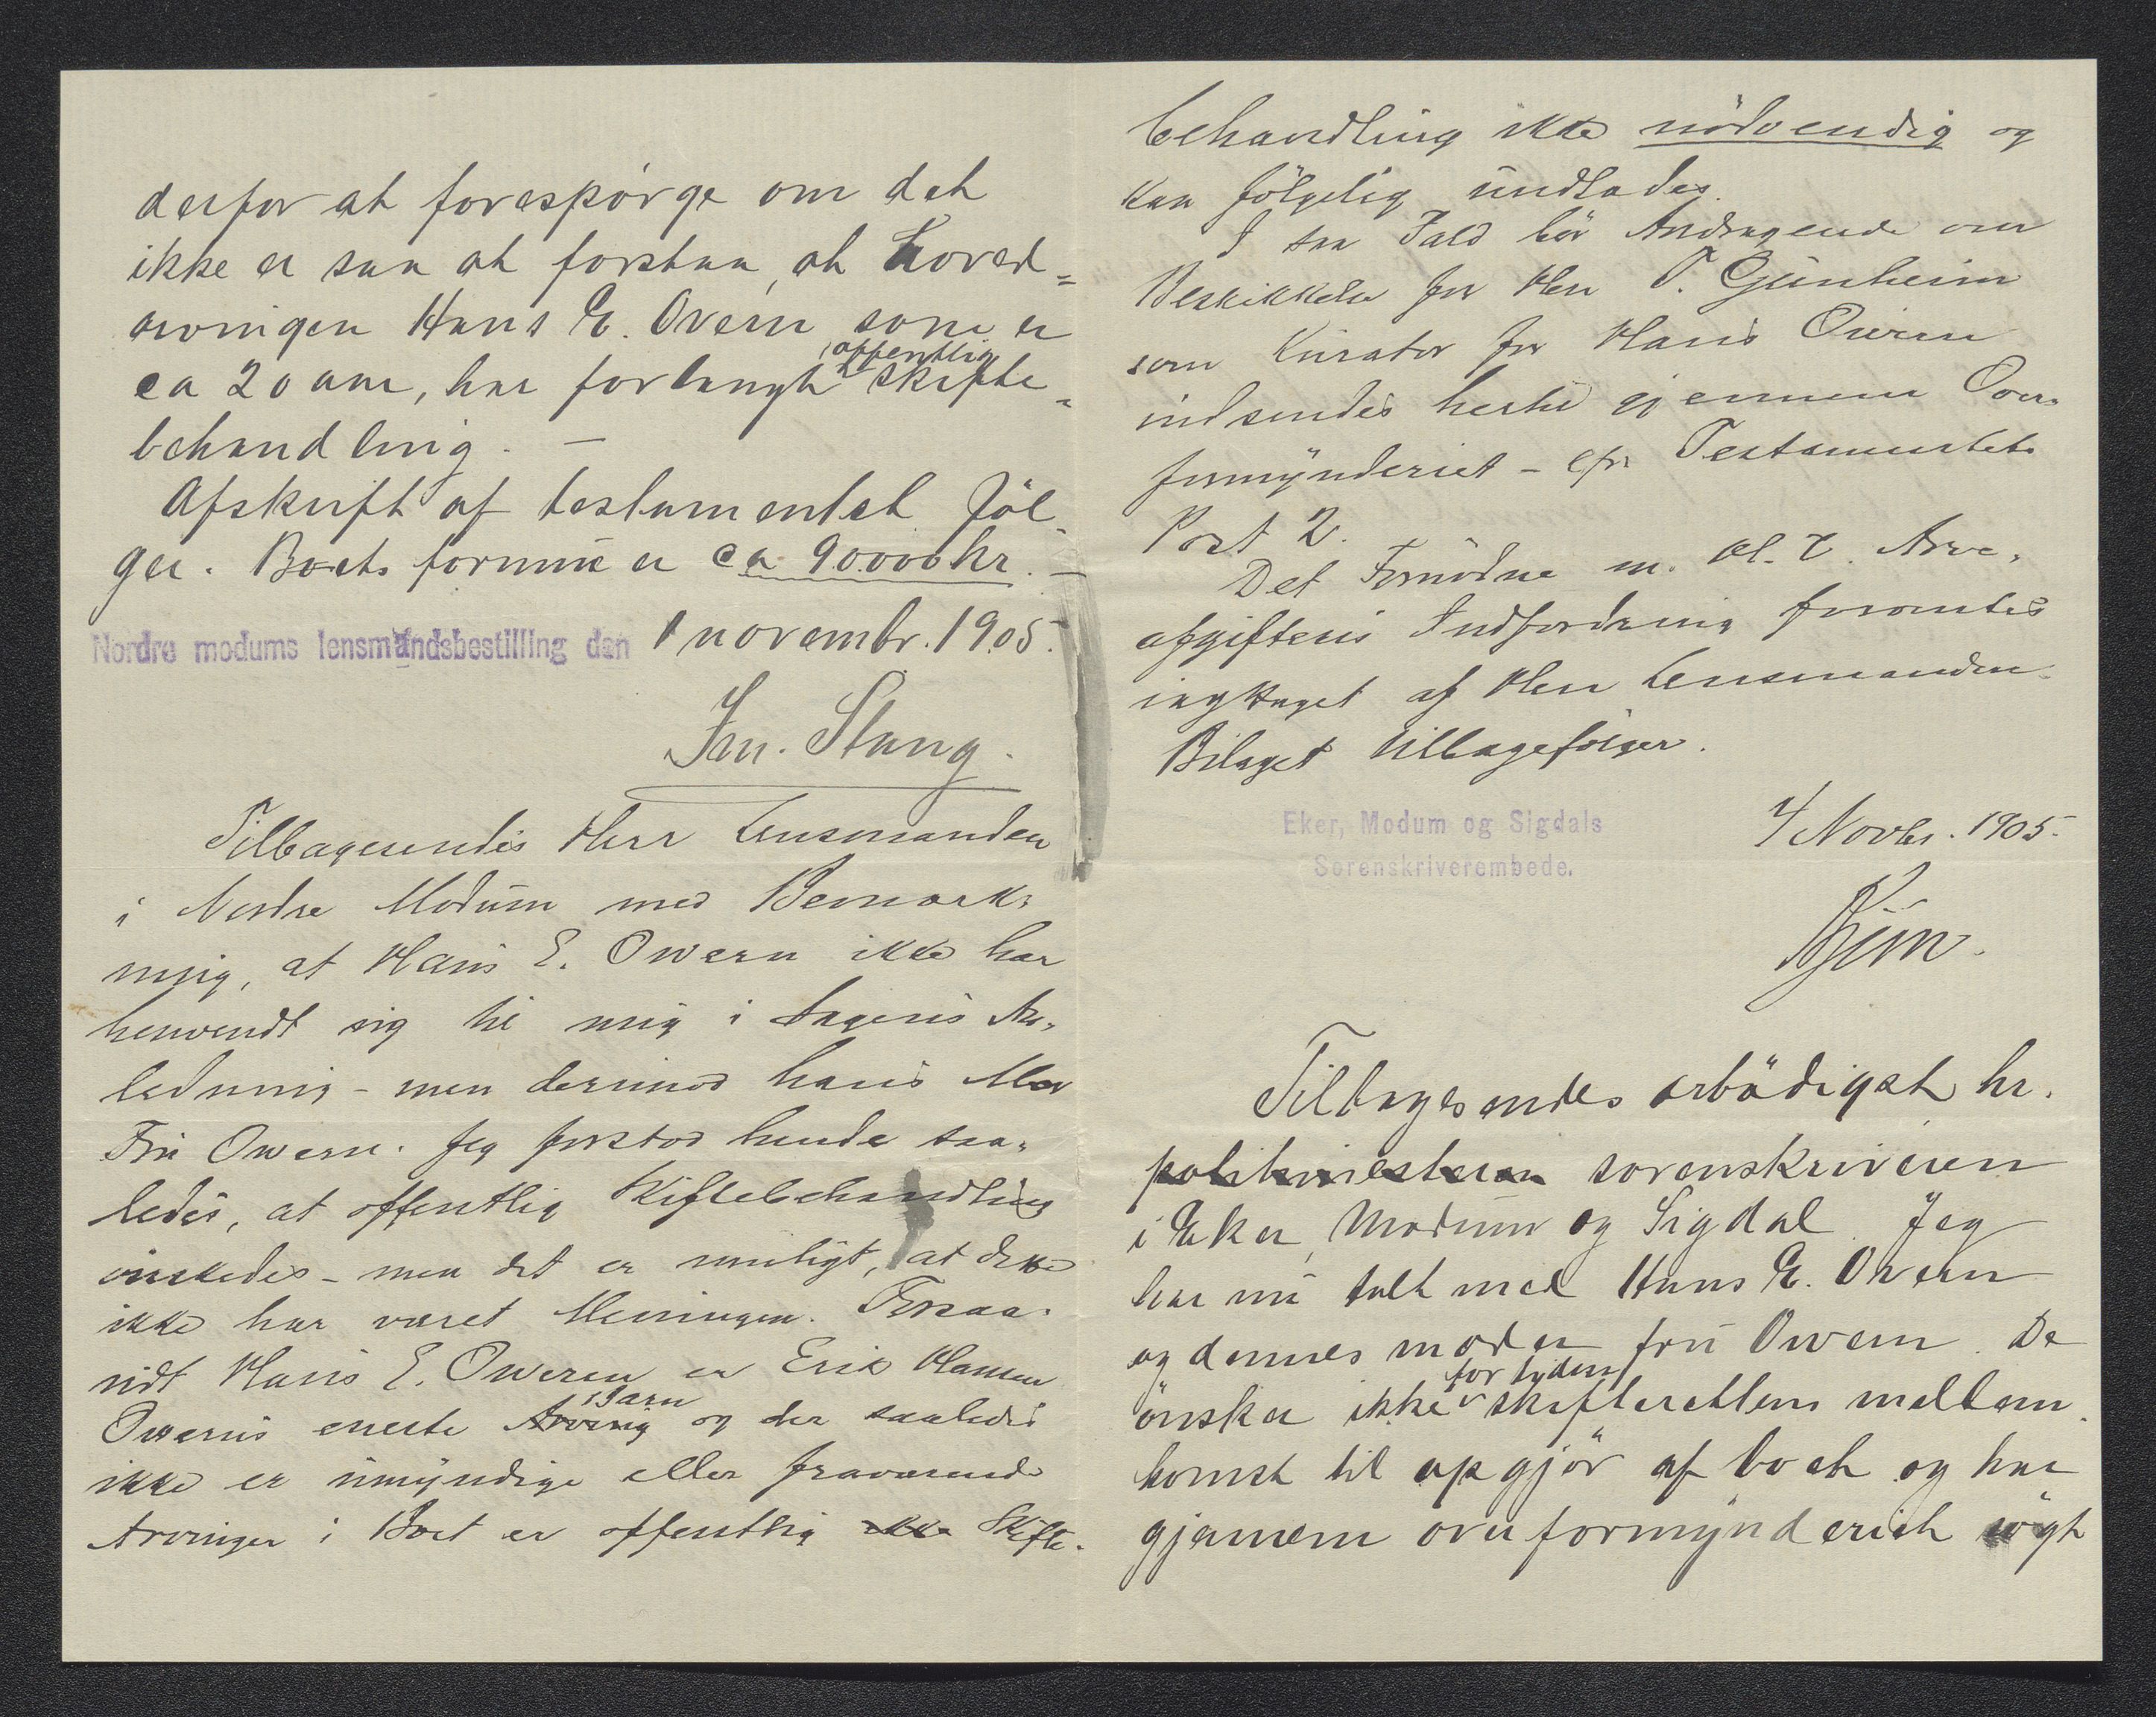 derfor at forespørge om det
ikke er saa at forstaa, at hoved=
arvingen Hans E. Overn, som er
offentlig
ca 20 aar, har forlangt skifte=
behandling. —
Afskrift af testamentet föl-
ger. Boets formue er ca 90000 kr. —
Nordre modums lensmandsbestilling den 1 novembr. 1905.
Jm. Stang.
Tilbagesendes Herr Lensmanden
i Nordre Modum med Bemærk-
ning, at Hans E. Owern ikke har
henvendt sig til mig i Sagens An-
ledning - men derimod hans Mor
Fru Owern. Jeg forstod hende saa-
ledes, at offentlig Skiftebehandling
önskedes - men det er muligt, at dette
ikke har været Meningen. Forsaa-
vidt Hans E. Oweren er Erik Hansen
Barn
Owerns eneste Arving og der saaledes
ikke er umyndige eller fraværende
Arvinger i Boet er offentlig ikke Skifte-
behandling ikke nödvendig og
kan fölgelig undlades.
I saa Fald bör Andragende om
Beskikkelse for Herr T. Gunheim
som Kurator for Hans Oweren
indsendes hertil gjennem Over-
formynderiet - efr Testamentets
Post 2.
Det Fornödne m. H. t. Arve-
afgiftens Indfordring forventes
iagttaget af Herr Lensmanden.
Bilaget tilbagefölger.
Eker, Modum og Sigdals
Sorenskriverembede.
4 Novbr. 1905.
Tilbagesendes ærbödigst hr.
politimesteren sorenskriveren
i Eker, Modum og Sigdal. Jeg
har nu talt med Hans E. Owern
og dennes moder fru Owern. De
for tiden
önsker ikke skifterettens mellem-
komst til opgjör af boet og har
gjennem overformynderiet sögt